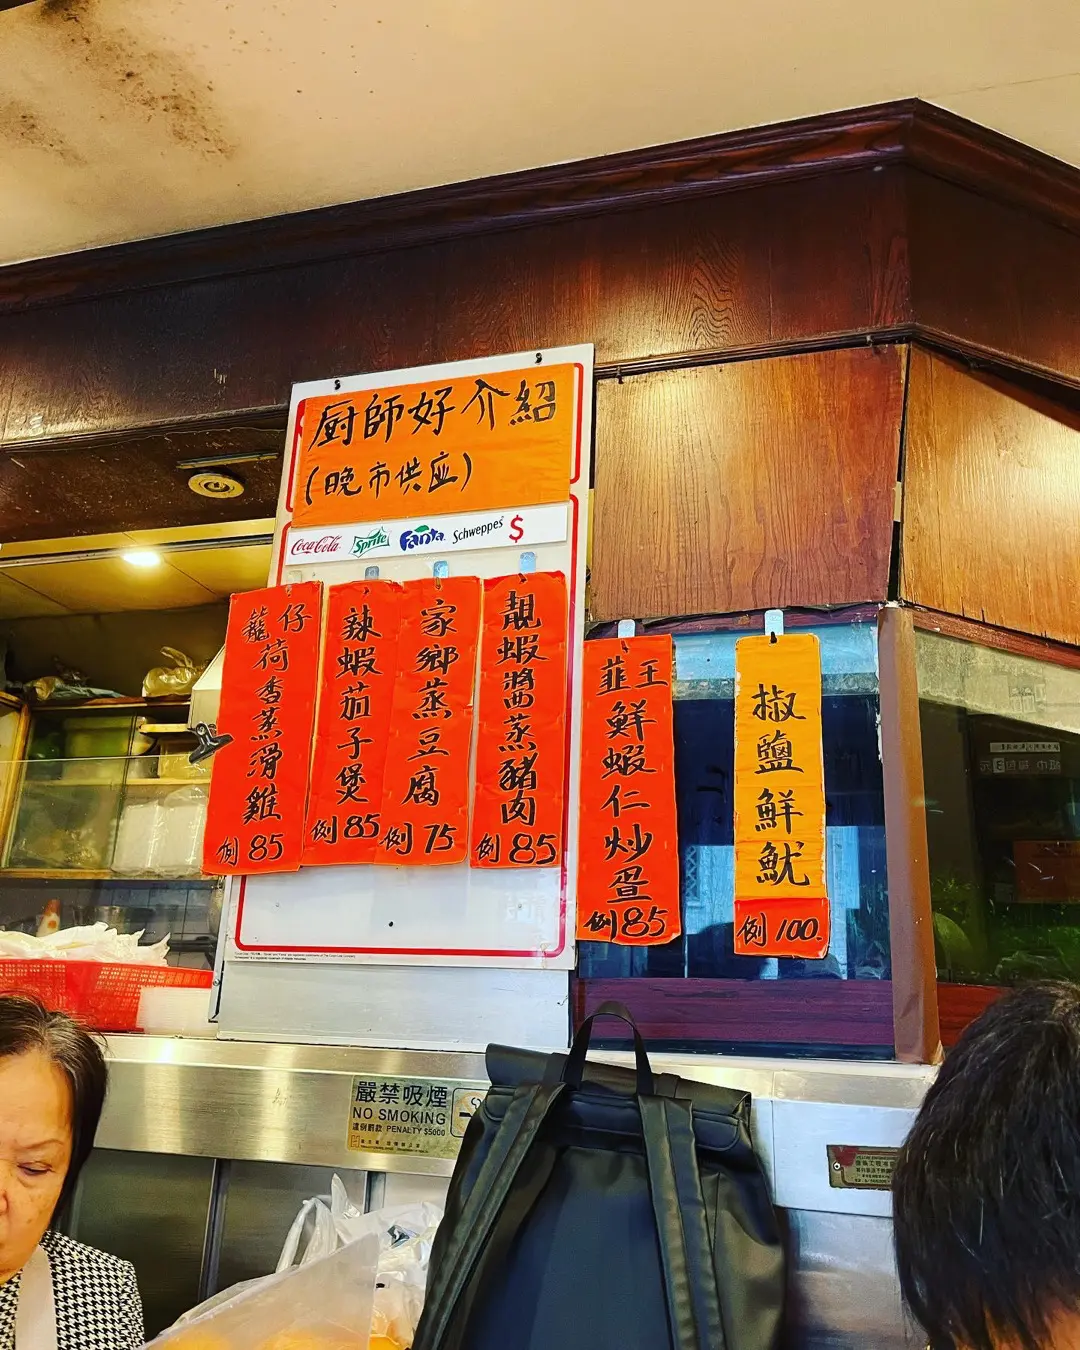 厨師好介紹
(晚市供应)
Coca-Cola Sprite Fanta Schweppes $
籠仔荷香蒸滑雞
例85
辣蝦茄子煲
例85
家鄉蒸豆腐
例75
靚蝦醬蒸豬肉
例85
韮王鮮蝦仁炒蛋
例85
椒鹽鮮魷
例100.
嚴禁吸煙
NO SMOKING
違例罰款 PENALTY $5000